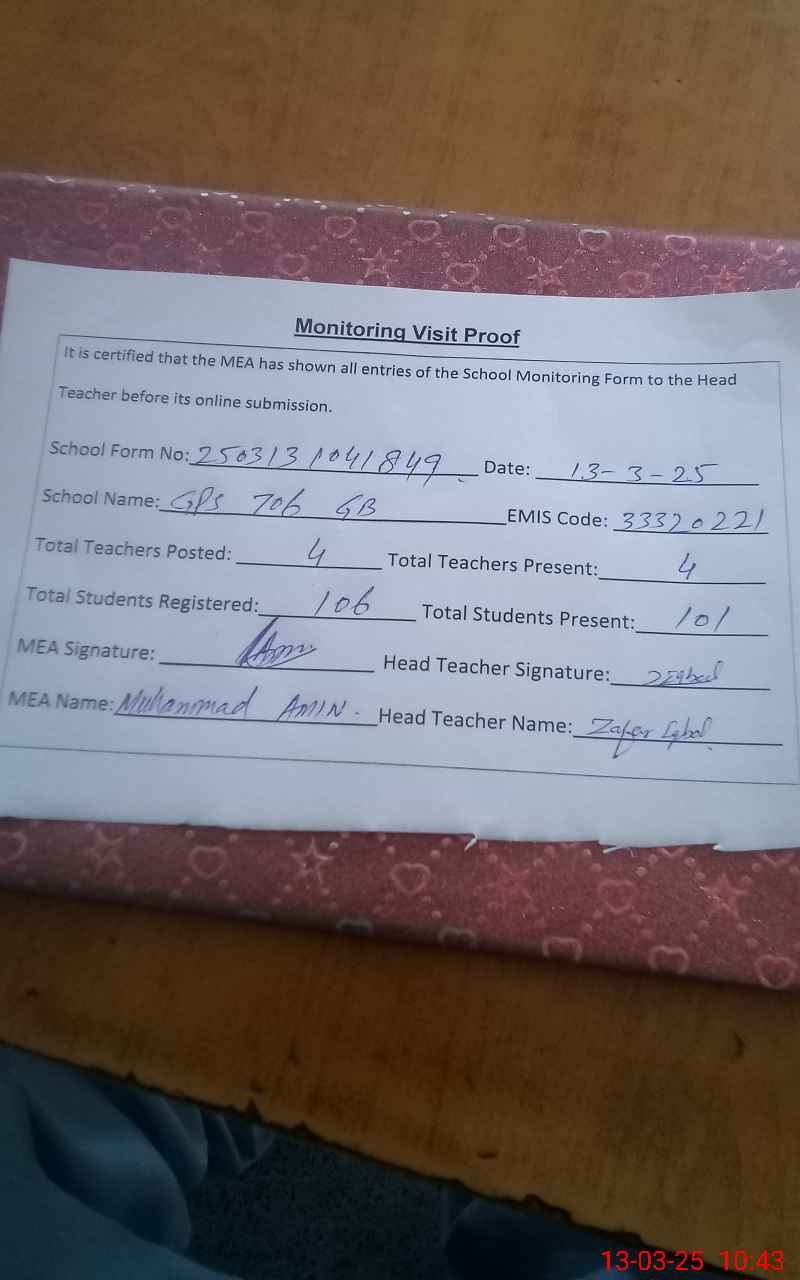 Monitoring Visit Proof
It is certified that the MEA has shown all entries of the School Monitoring Form to the Head
Teacher before its online submission.
School Form No: 2503131041849 Date: 13-3-25
School Name: GPS 706 GB EMIS Code: 33320221
Total Teachers Posted: 4 Total Teachers Present: 4
Total Students Registered: 106 Total Students Present: 101
MEA Signature: Amin Head Teacher Signature: ZIqbal
MEA Name: Muhammad AMIN. Head Teacher Name: Zafar Iqbal
13-03-25 10:43